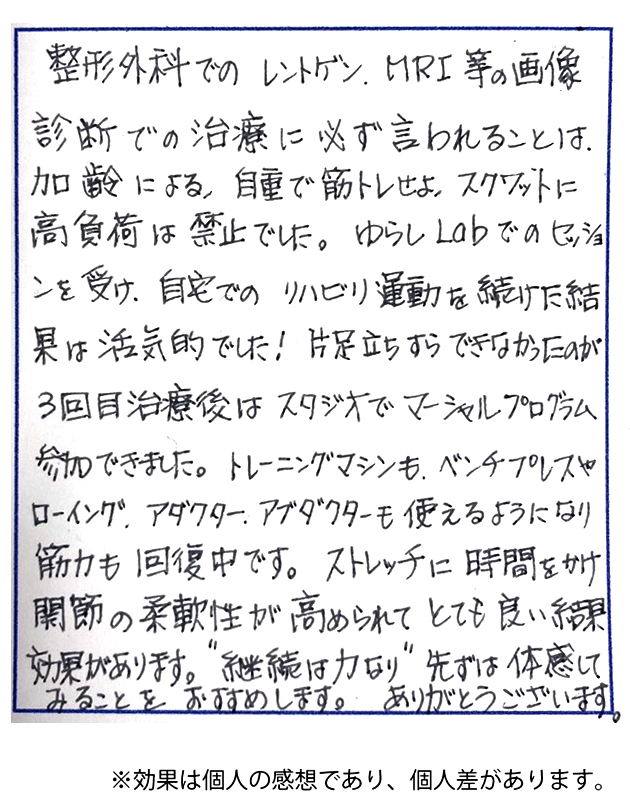 整形外科での レントゲン、MRI 等の画像
診断での治療に必ず言われることは、
加齢による、自重で筋トレせよ、スクワットに
高負荷は禁止でした。ゆらしLabでのセッショ
ンを受け、自宅でのリハビリ運動を続けた結
果は活気的でした！片足立ちすらできなかったのが
3回目治療後はスタジオでマーシャルプログラム
参加できました。トレーニングマシンも、ベンチプレスや
ローイング、アダクター、アブダクターも使えるようになり
筋力も回復中です。ストレッチに時間をかけ
関節の柔軟性が高められてとても良い結果
効果があります。"継続は力なり"先ずは体感して
みることをおすすめします。ありがとうございます。
※効果は個人の感想であり、個人差があります。